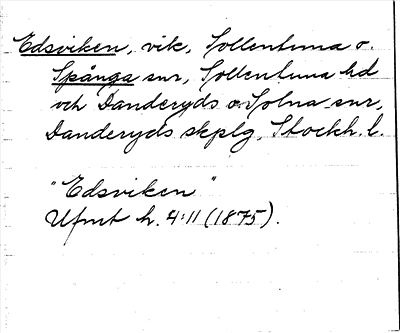 Edsviken, vik, Sollentuna o.
Spånga snr, Sollentuna hd
och Danderyds o. Solna snr,
Danderyds skplg, Stockh. l.
"Edsviken"
Ufmt h. 4:11 (1875).